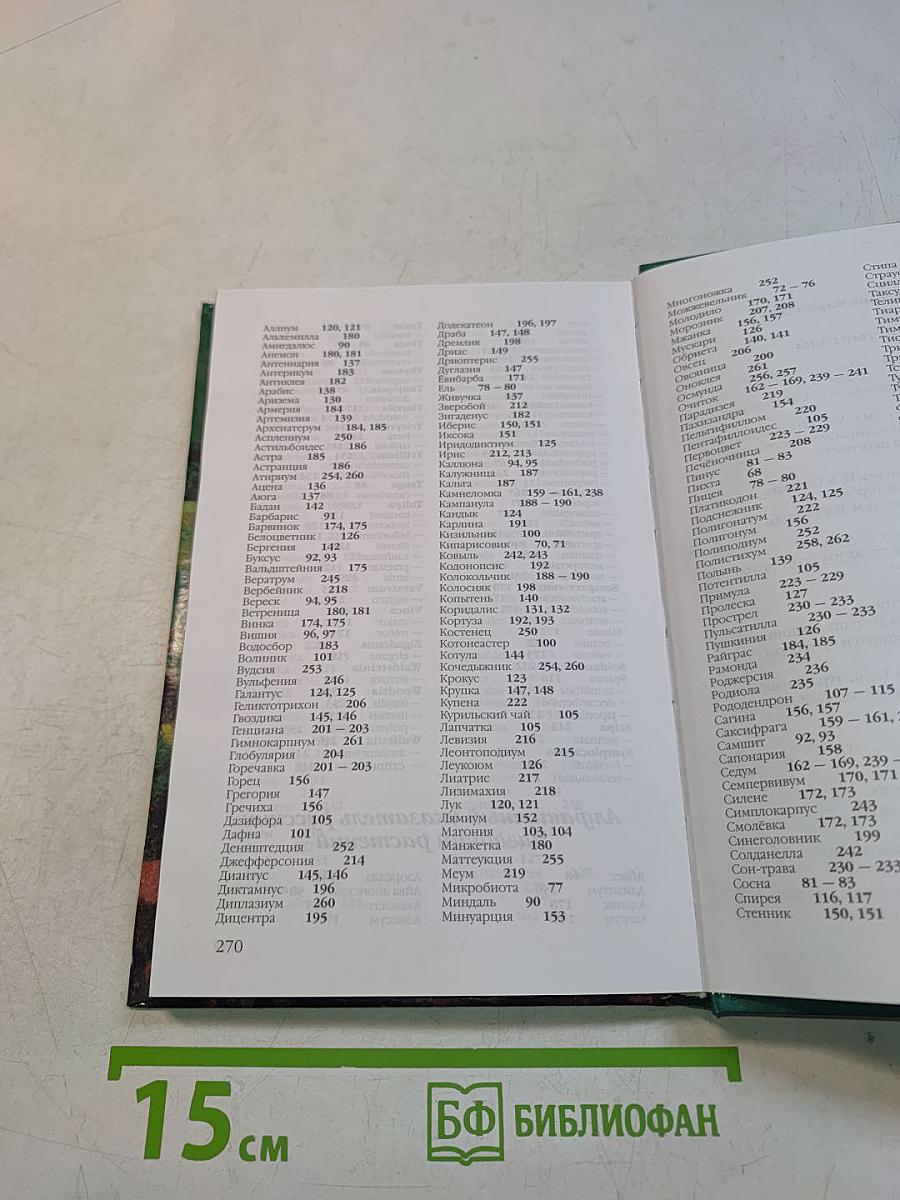 Аллиум 120, 121
Альхемилла 180
Амигдалюс 90
Анемон 180, 181
Антеннария 137
Антерикум 183
Антиклея 182
Арабис 138
Аризема 130
Армерия 184
Артемизия 139
Архенатерум 184, 185
Асплениум 250
Астильбоидес 186
Астра 185
Астранция 186
Атириум 254, 260
Ацена 136
Аюга 137
Бадан 142
Барбарис 91
Барвинок 174, 175
Белоцветник 126
Бергения 142
Буксус 92, 93
Вальдштейния 175
Вератрум 245
Вербейник 218
Вереск 94, 95
Ветреница 180, 181
Винка 174, 175
Вишня 96, 97
Водосбор 183
Волчник 101
Вудсия 253
Вульфения 246
Галантус 124, 125
Геликтотрихон 206
Гвоздика 145, 146
Генциана 201 — 203
Гимнокарпиум 261
Глобулярия 204
Горечавка 201 — 203
Горец 156
Грегория 147
Гречиха 156
Дазифора 105
Дафна 101
Деннштедция 252
Джефферсония 214
Диантус 145, 146
Диктамнус 196
Диплазиум 260
Дицентра 195
Додекатеон 196, 197
Драба 147, 148
Дремлик 198
Дриас 149
Дриоптерис 255
Дуглазия 147
Евибарба 171
Ель 78 — 80
Живучка 137
Зверобой 212
Зигаденус 182
Иберис 150, 151
Иксока 151
Иридодиктиум 125
Ирис 212, 213
Каллюна 94, 95
Калужница 187
Кальта 187
Камнеломка 159 — 161, 238
Кампанула 188 — 190
Кандык 124
Карлина 191
Кизильник 100
Кипарисовик 70, 71
Ковыль 242, 243
Кодонопсис 192
Колокольчик 188 — 190
Колосняк 198
Копытень 140
Коридалис 131, 132
Кортуза 192, 193
Костенец 250
Котонеастер 100
Котула 144
Кочедыжник 254, 260
Крокус 123
Крупка 147, 148
Купена 222
Курильский чай 105
Лапчатка 105
Левизия 216
Леонтоподиум 215
Леукоюм 126
Лиатрис 217
Лизимахия 218
Лук 120, 121
Лямиум 152
Магония 103, 104
Манжетка 180
Маттеукция 255
Меум 219
Микробиота 77
Миндаль 90
Минуарция 153
270
Многоножка 252
Можжевельник 72 — 76
Молодило 170, 171
Морозник 207, 208
Мжанка 156, 157
Мускари 126
Обриета 140, 141
Овсец 206
Овсяница 200
Оноклея 261
Осмунда 256, 257
Очиток 162 — 169, 239 — 241
Парадизея 219
Пахизандра 154
Пельтифиллюм 220
Пентафиллоидес 105
Первоцвет 223 — 229
Печёночница 208
Пинус 81 — 83
Пихта 68
Пицея 78 — 80
Платикодон 221
Подснежник 124, 125
Полигонатум 222
Полигонум 156
Полиподиум 252
Полистихум 258, 262
Полынь 139
Потентилла 105
Примула 223 — 229
Пролеска 127
Прострел 230 — 233
Пульсатилла 230 — 233
Пушкиния 126
Райграс 184, 185
Рамонда 234
Роджерсия 236
Родиола 235
Рододендрон 107 — 115
Сагина 156, 157
Саксифрага 159 — 161,
Самшит 92, 93
Сапонария 158
Седум 162 — 169, 239 —
Семпервивум 170, 171
Силене 172, 173
Симплокарпус 243
Смолёвка 172, 173
Синеголовник 199
Солданелла 242
Сон-трава 230 — 233
Сосна 81 — 83
Спирея 116, 117
Стенник 150, 151
Стипа
15 см
БФ БИБЛИОФАН